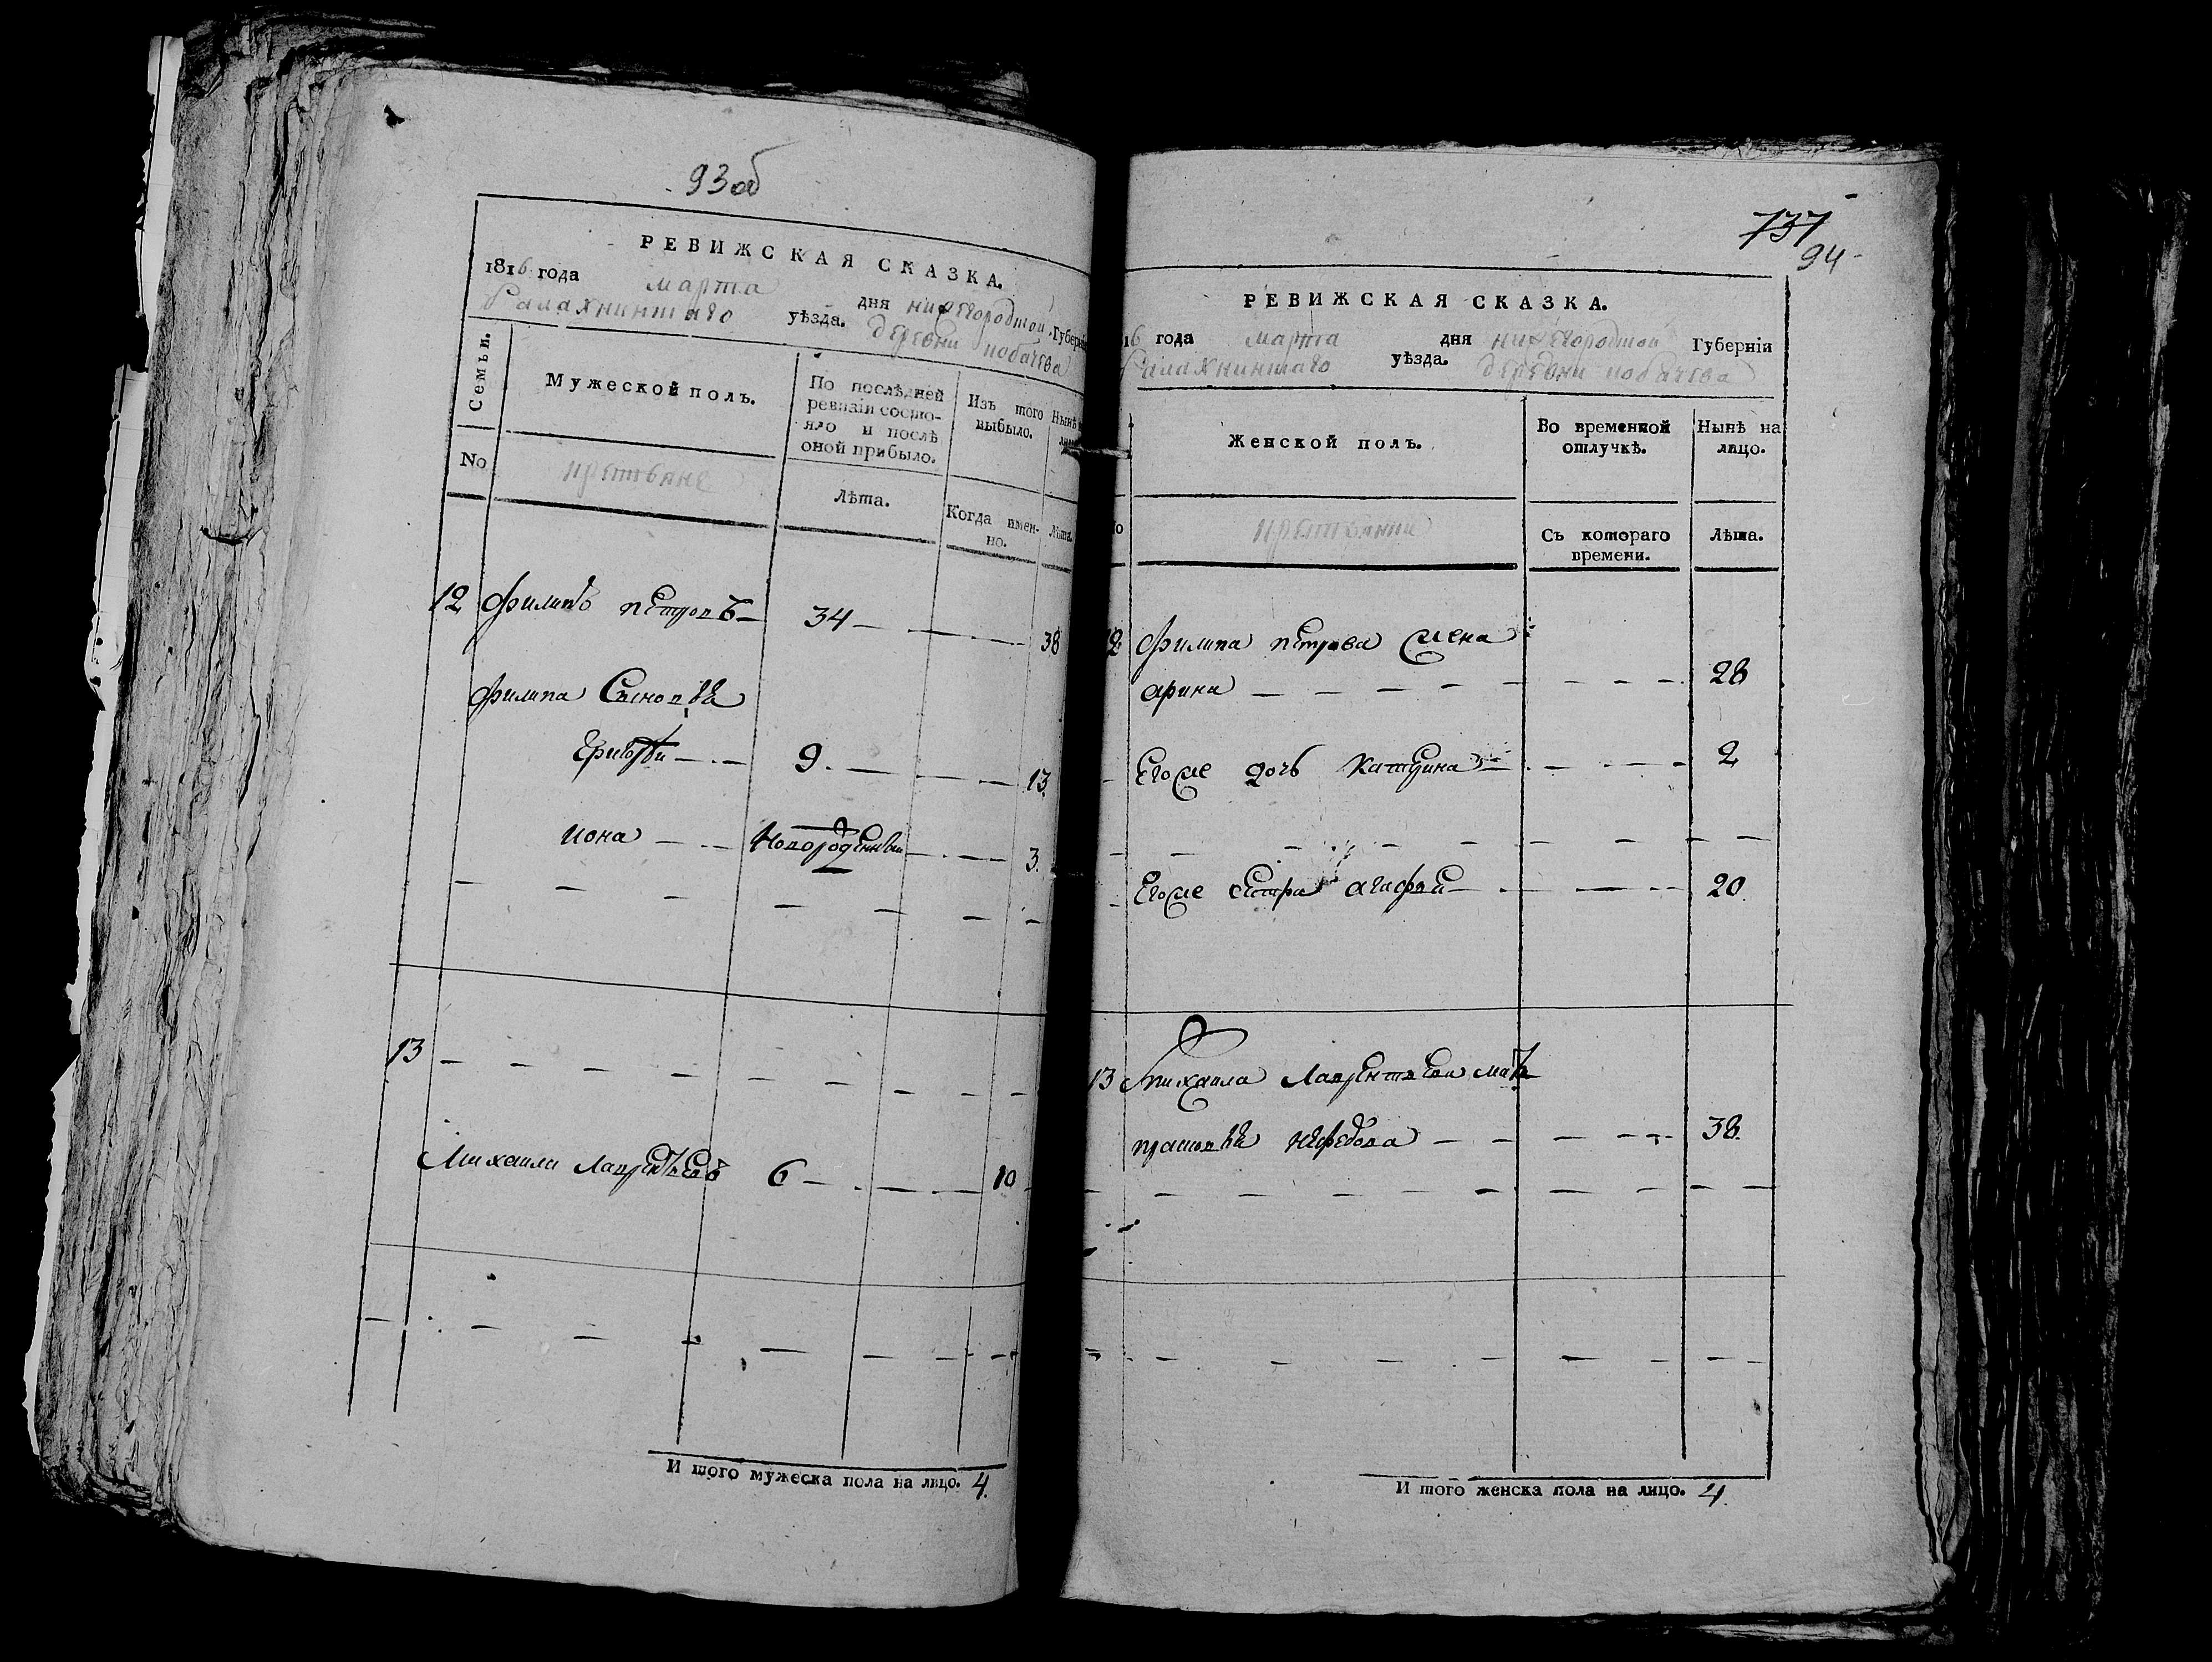 93об
РЕВИЖСКАЯ СКАЗКА.
1816 года марта дня нижегородской Губерніи
Балахнинскаго уѣзда. деревни кобачева
Семьи.
Мужеской полъ.
По послѣдней ревизіи состояло и послѣ оной прибыло.
Изъ того выбыло.
Нынѣ
No
крестьяне
Лѣта.
Когда именно.
Лѣта.
12 Филипъ петровъ 34 38
Филипа Сыновья
Григорѣи 9. 13.
иона Новорожденныи 3.
13
Михаила Лаврентьевъ 6 10
И того мужеска пола на лицо. 4.
737
94
РЕВИЖСКАЯ СКАЗКА.
16 года марта дня нижегородской Губерніи
Балахнинскаго уѣзда. деревни кобачева
Женской полъ.
Во временной отлучкѣ.
Нынѣ на лицо.
крестьянки
Съ котораго времени.
Лѣта.
12 Филипа петрова жена
арина 28
Егоже дочь Катерина 2
Егоже сестра агафья 20.
13 Михаила Лаврентьева мать
прасковья нефедова 38.
И того женска пола на лицо. 4.